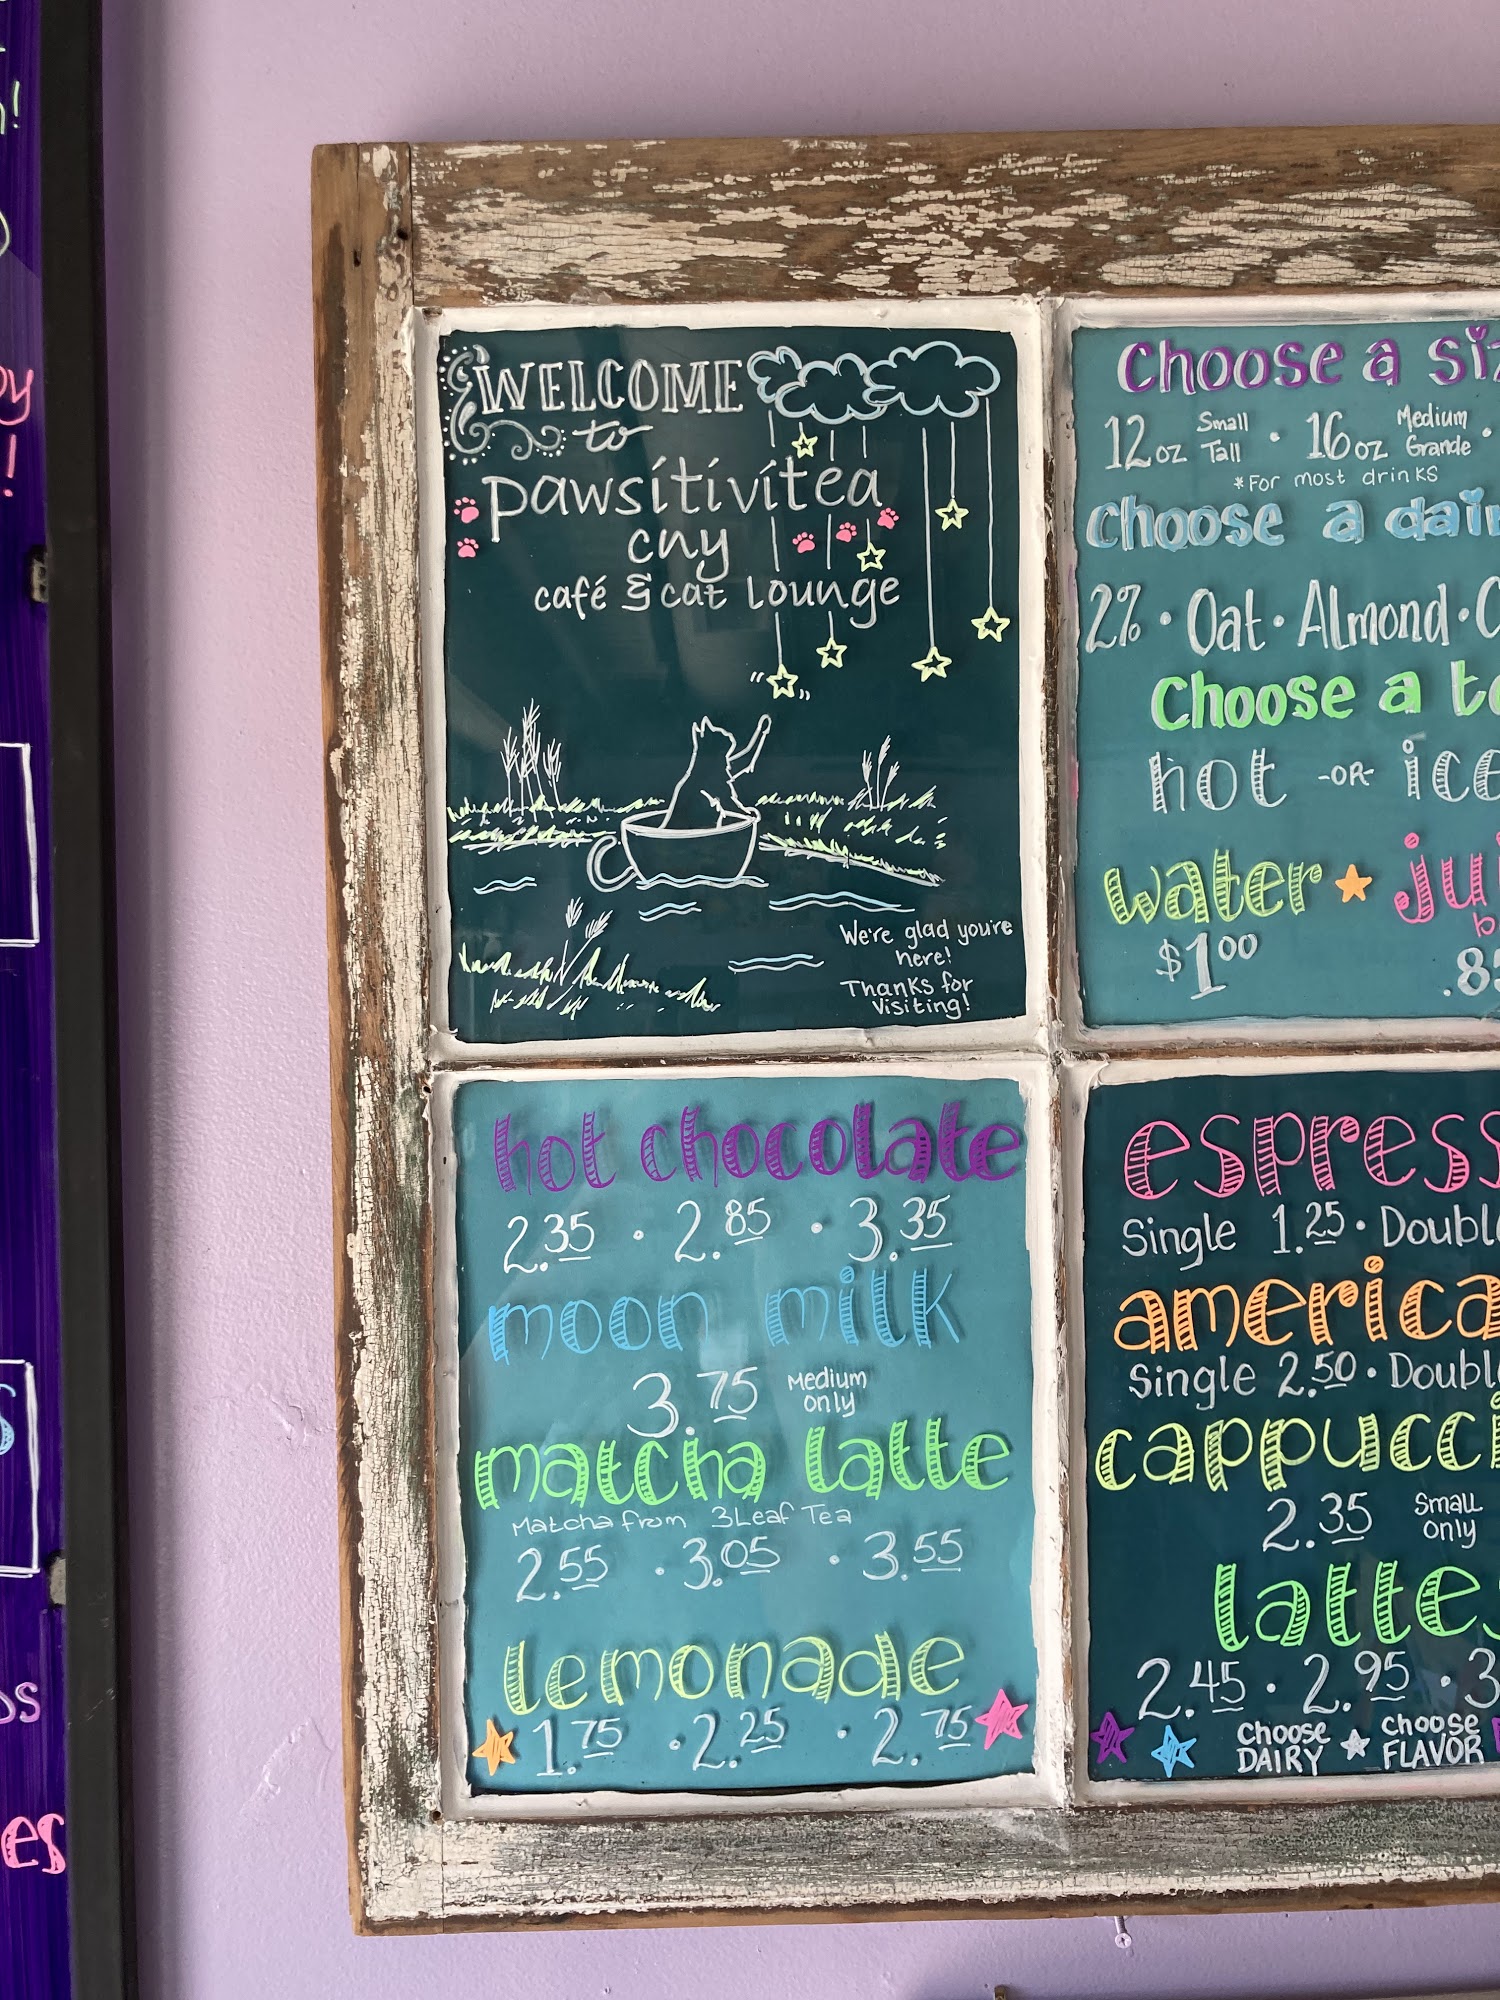 WELCOME
to
pawsitivitea
cny
café & cat lounge
We're glad you're
here!
Thanks for
Visiting!
Choose a
12oz Small Tall · 16oz Medium Grande ·
*For most drinks
Choose a
2% · Oat · Almond ·
Choose a
hot -OR-
water
$1.00
hot chocolate
2.35 · 2.85 · 3.35
moon milk
3.75 Medium only
matcha latte
Matcha from 3Leaf Tea
2.55 · 3.05 · 3.55
lemonade
1.75 · 2.25 · 2.75
espress
Single 1.25 · Doubl
america
Single 2.50 · Doubl
cappucci
2.35 Small only
lattes
2.45 · 2.95 · 3
Choose DAIRY Choose FLAVOR